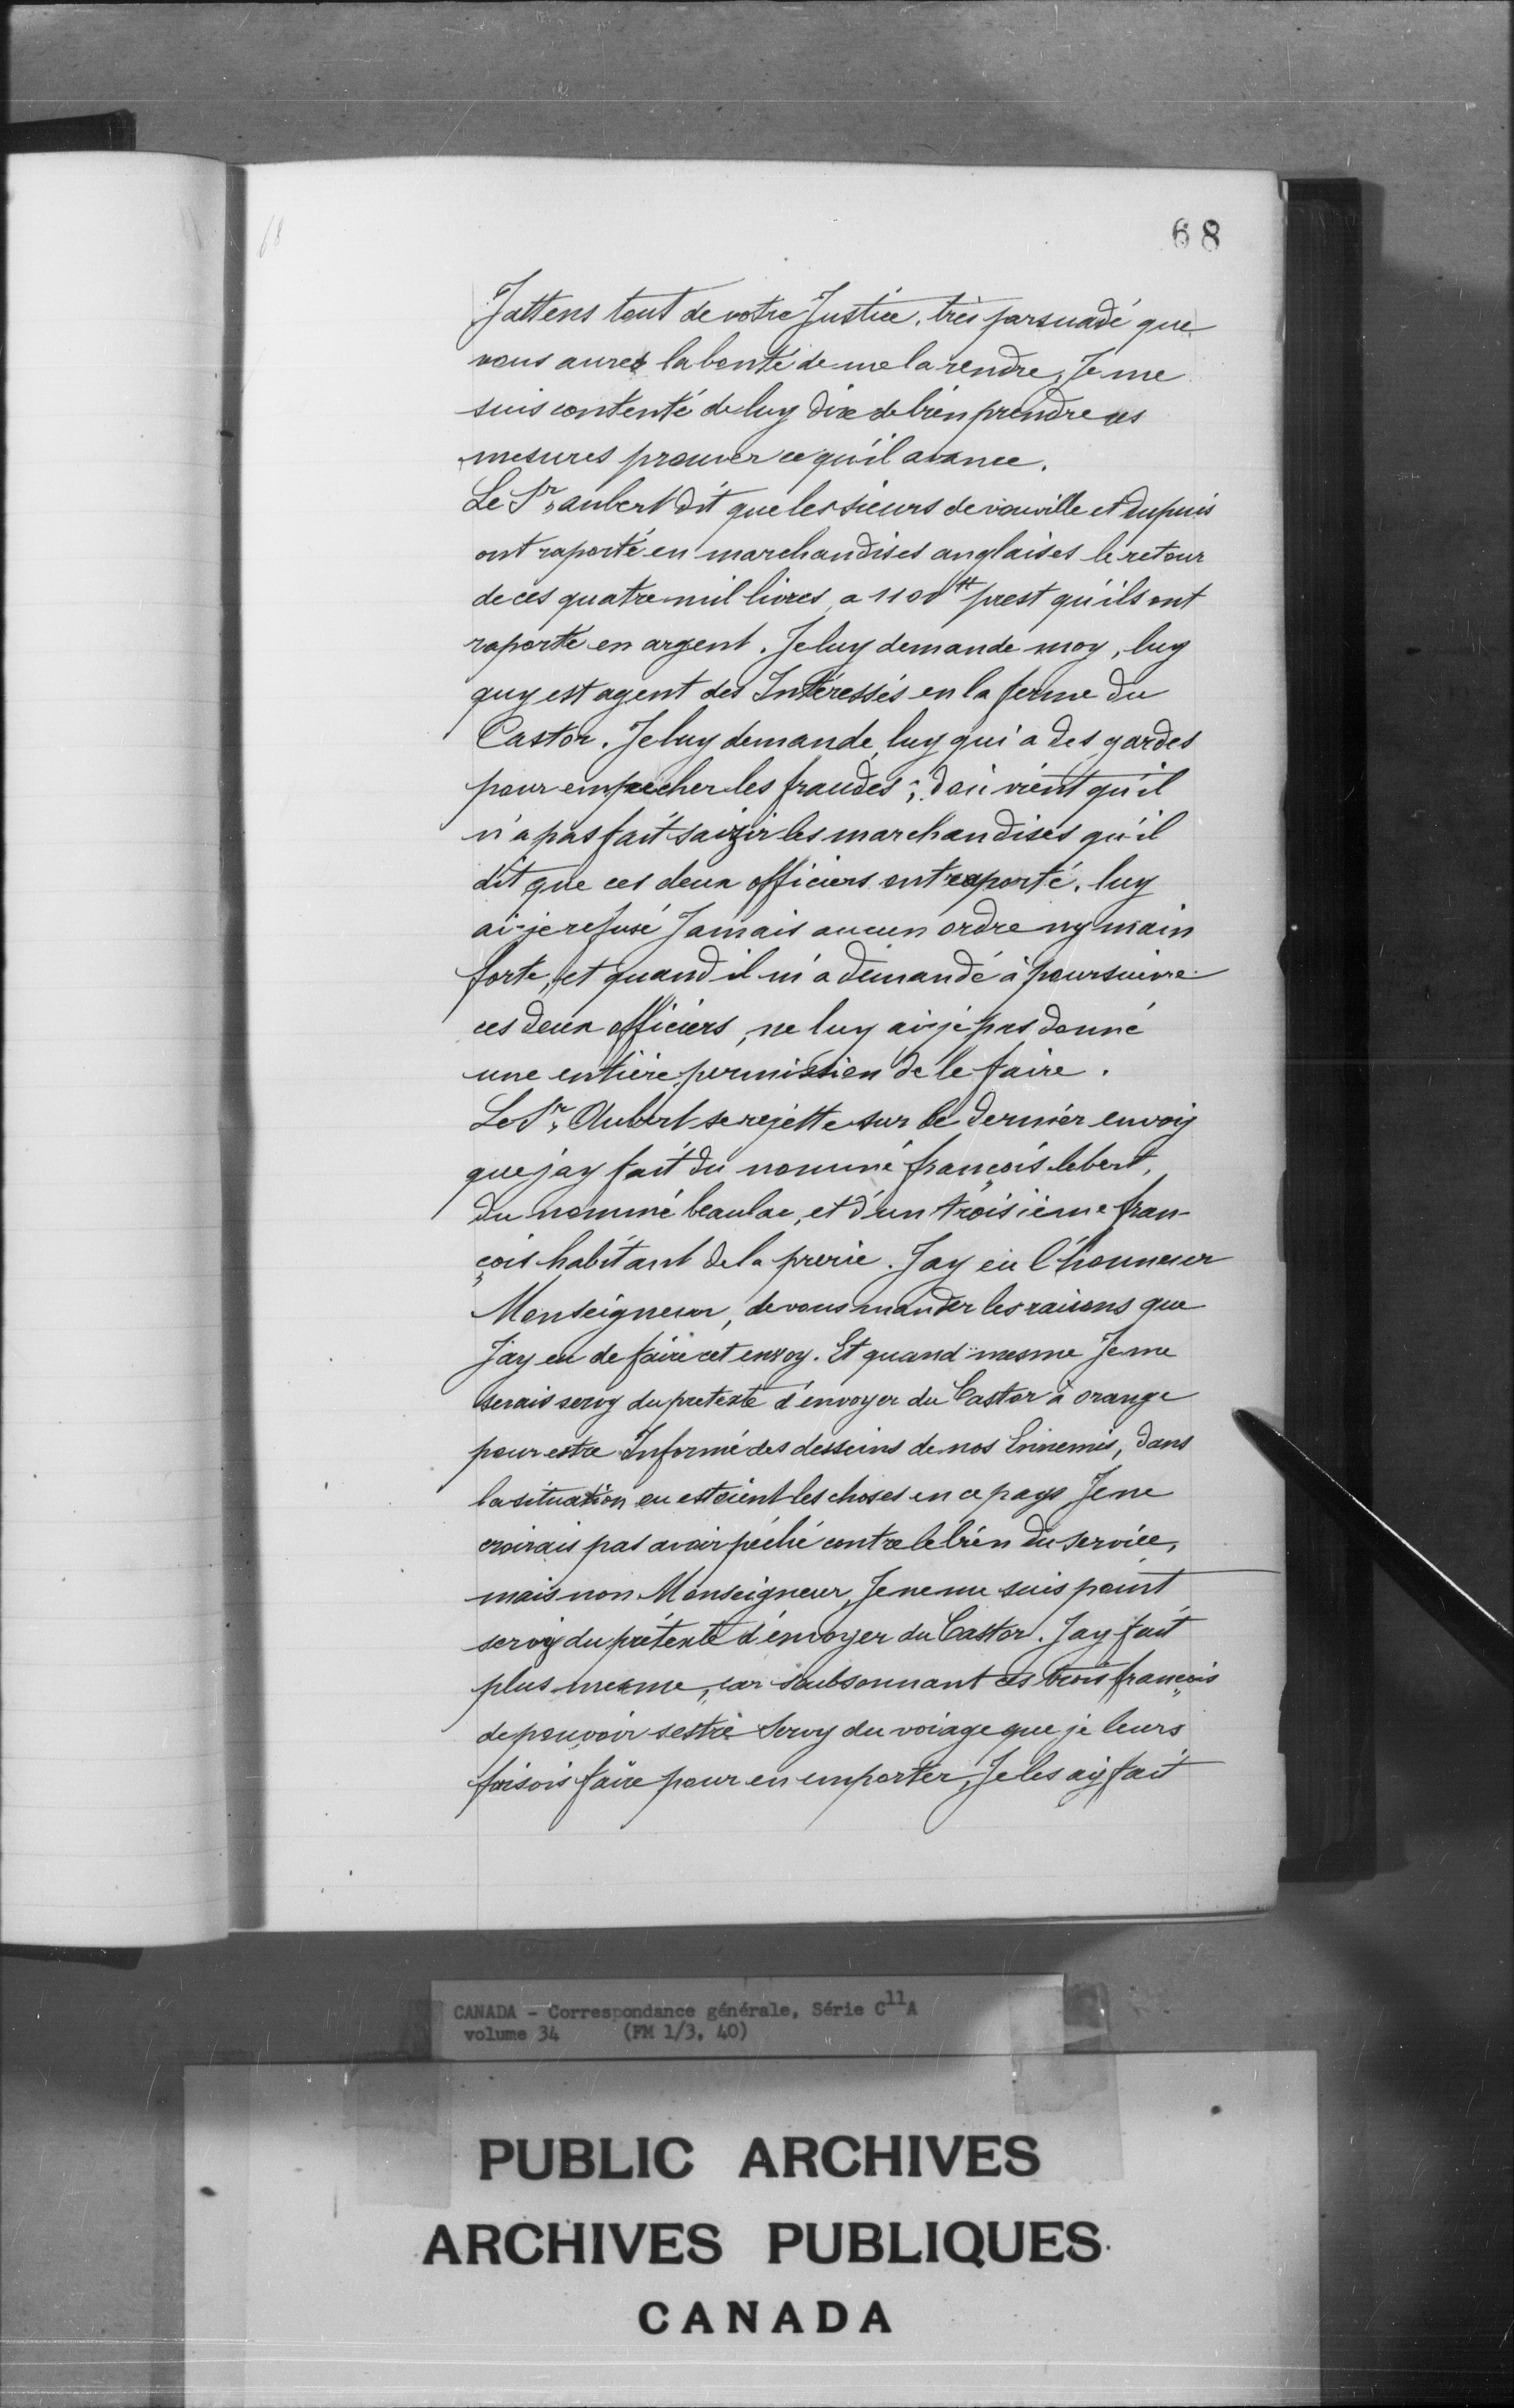 68
68
Jattens tout de votre Justice, très parsuadé que
vous aurez la bonté de me la rendre, Je me
suis contenté de luy dire de bien prendre ses
mesures prouver ce qu'il avance.
Le Sr. aubert dit que les sieurs derouville et dupuis
ont raporté en marchandises anglaises le retour
de ces quatre mil livres, a 1100 tt prest qu'ils ont
raporte en argent. Je luy demande moy, luy
quy est agent des Intéressés en la ferme du
Castor. Je luy demande, luy qui a des gardes
pour empescher les fraudes; d'où vient qu'il
n'a pas fait saizir les marchandises qu'il
dit que ces deux officiers ont raporté. luy
ai-je refusé Jamais aucun ordre ny main
forte, et quand il m'a demandé à poursuivre
ces deux officiers, ne luy ai-je pas donné
une entière permission de le faire.
Le Sr. Aubert se rejette sur le dernier envoy
que j'ay fait du nommé françois lebert,
du nommé beaulac, et d'un troisième fran-
çois habitant de la prerie. Jay eu l'honneur
Monseigneur, de vous mander les raisons que
J'ay eu de faire cet envoy. Et quand mesme Je me
serais servy du pretexte d'envoyer du Castor à orange
pour estre Informé des desseins de nos Ennemis, dans
la situation ou estoient les choses en ce pays Je ne
croirais pas avoir péché contre le bien du service,
mais non Monseigneur, Je ne me suis point
servy du prétexte d'envoyer du Castor. Jay fait
plus mesme, car soubsonnant ces trois françois
de pouvoir sestre servy du voiage que je leurs
faisois faire pour en emporter, Je les ay fait
CANADA - Correspondance générale, Série C11A
volume 34 (FM 1/3, 40)
PUBLIC ARCHIVES
ARCHIVES PUBLIQUES
CANADA